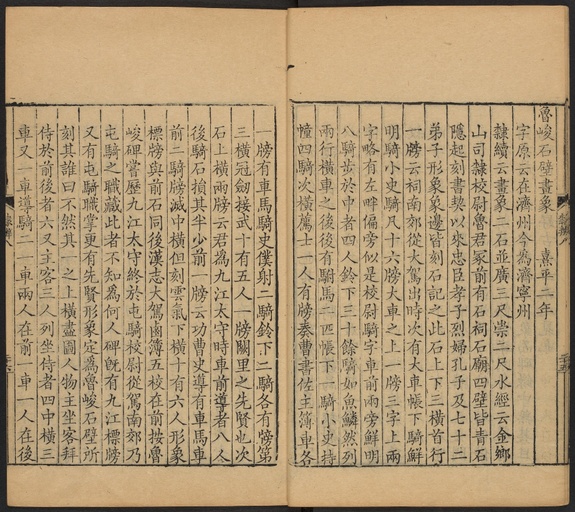 魯峻石壁畫象　熹平二年
字原云在濟州今為濟寧州
隸續云畫象二石並廣三尺崇二尺水經云金鄉
山司隸校尉魯君冢前有石祠石廟四壁皆青石
隱起刻書契以來忠臣孝子烈婦孔子及七十二
弟子形象象邊皆刻石記之此石上下三橫首行
一牓云祠南郊從大駕出時次有大車帳下騎鮮
明騎小史騎凡十六牓大車之上一牓三字上兩
字略有左畔偏旁似是校尉騎字車前兩旁鮮明
八騎步於中者四人鈴下三十餘騎如魚鱗然列
兩行橫車之後後有騎馬二匹帳下一騎小史持
幢四騎次橫薦士一人有牓奏曹書佐主簿車各
一牓有車馬騎史僕射二騎鈴下二騎各有牓第
三橫冠劍接武十有五人一牓闕里之先賢也次
石上橫兩牓云君為九江太守時車前導者八人
後騎石損其半少前一牓云功曹史導有車馬車
前二騎牓滅中橫但刻雲氣下橫十有六人形象
標牓與前石同後漢志大駕鹵簿五校在前按魯
峻碑嘗歷九江太守終於屯騎校尉從駕南郊乃
屯騎之職藏此者不知為何人碑既有九江標牓
又有屯騎職掌更有先賢形象定為魯峻石壁所
刻其誰曰不然其一之上橫盡圖人物主坐客拜
侍於前後者六又主客三人列坐侍者四中橫三
車又一車導騎二一車兩人在前一車一人在後